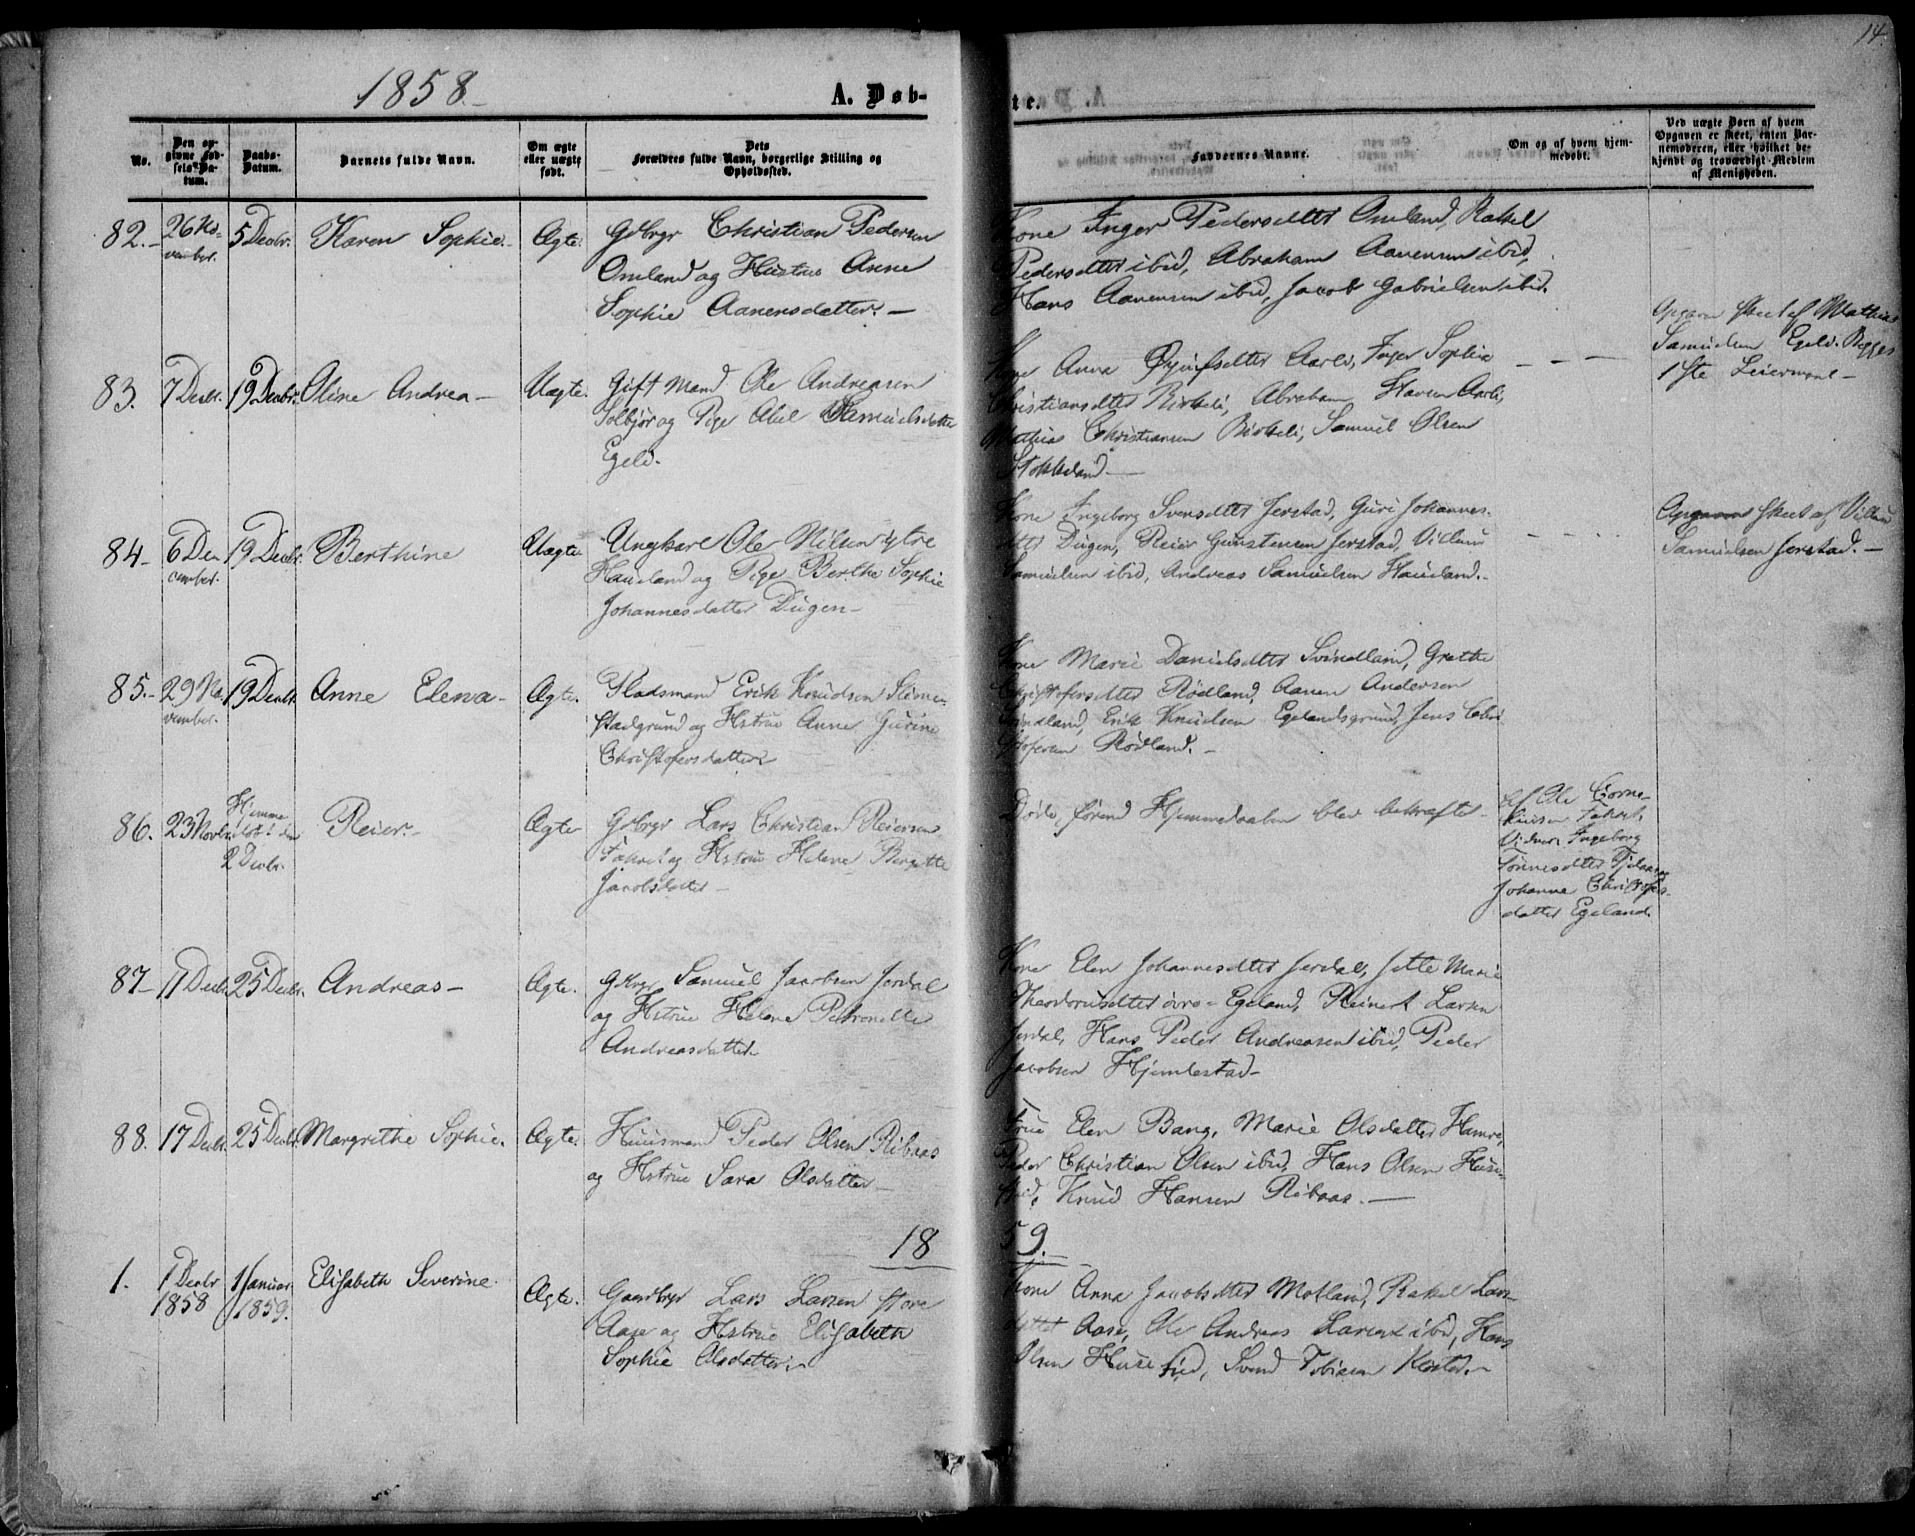 14.
1858.
A. Døb-
te.
No.
Den op-
givne Fød-
sels-Da-
tum.
Daabs-
Datum.
Barnets fulde Navn.
Om ægte
eller uægte
født.
Dets
Forældres fulde Navn, borgerlige Stilling og
Opholdssted.
Faddernes Navne.
Om og af hvem hjem-
medøbt.
Ved uægte Børn af hvem
Opgaven er skeet, enten Bar-
nemoderen, eller hvilket be-
kjendt og troværdigt Medlem
af Menigheden.
82.-
26 No-
vember.
5 Decbr.
Karen Sophie.
Ægte.
Gdbrgr Christian Pedersen
Omland og Hustrue Anne
Sophie Aanensdatter. -
Kone Inger Pedersdtter Omland, Rakel
Pedersdtter ibid, Abraham Aanensen ibid,
Hans Aanensen ibid, Jacob Gabrielsen ibid.
83.
7 Decbr.
19 Decbr.
Oline Andrea -
Uægte.
Gift Mand Ole Andreasen
Solbjør og Pige Abel Samuelsdatter
Egeld.
Kone Anna dtter Aarli, Inger Sophie
Christiansdtter Birkeli, Abraham Aarli,
Mathias Christiansen Birkeli, Samuel Olsen
Stokkeland. -
Opgaven skeet af Mathias
Samuelsen Egeld. Begges
1ste Leiermaal -
84 -
6 De-
cember.
19 Decbr.
Berthine
Uægte
Ungkarl Ole Nilsen ytre
Haueland og Pige Berthe Sophie
Johannesdatter Dugen -
Kone Ingeborg Svensdtter Jerstad, Guri Johannes-
dtter Dugen, Reier Gunstensen Jerstad, Villum
Samuelsen ibid, Andreas Samuelsen Haueland. -
Opgaven skeet af Villum
Samuelsen Jerstad. -
85.-
29 No-
vember.
19 Decbr.
Anne Elena -
Ægte.
Pladsmand Erik Knudsen Slime-
stadgrund og Hstrue Anne Gurine
Christofersdatter
Kone Marie Danielsdtter Svindland, Grethe
Christofersdtter Rødland, Aanen Andersen
Svindland, Erik Knudsen Egelandsgrund, Jens Chri
stofersen Rødland. -
86.
23 Novbr.
Hjemme
døbt den
2 Decbr.
Reier. -
Ægte
Gdbrgr Lars Christian Reiersen
og Hstrue Helene Bergitte
Jacobsdatter -
Døde, førend Hjemmedaaben blev bekræftet -
af Ole Corne-
liusen
Vidner: Ingeborg
Tønnesdtter
Johanne Christofers-
datter Egeland.
87 -
11 Decbr.
25 Decbr.
Andreas -
Ægte.
Gdbrgr Samuel Jacobsen Jerdal
og Hstrue Helene Petronelle
Andreasdatter.
Kone Elen Johannesdtter Jerdal, Jette Marie
Theodorusdtter øvre-Egeland, Reinert Larsen
Jerdal, Hans Peder Andreasen ibid, Peder
Jacobsen Hjemlestad -
88.
17 Decbr.
25 Decbr.
Margrithe Sophie.
Ægte.
Huusmand Peder Olsen Ribaas
og Hstrue Sara Olsdatter -
Frue Elen Bang, Marie Olsdatter Hamre,
Peder Christian Olsen ibid, Hans Olsen Huse-
bid, Knud Hansen Ribaas. -
18
59.
1.
1 Decbr
1858
1 Januar
1859.
Elisabeth Severine.
Ægte.
Gaardbrgr Lars Larsen store
Aase og Hstrue Elisabeth
Sophie Olsdatter. -
Kone Anna Jacobsdtter Motland, Rakel Lars-
datter Aase, Ole Andreas Larsen ibid, Hans
Olsen Husebid, Svend Tobiasen -